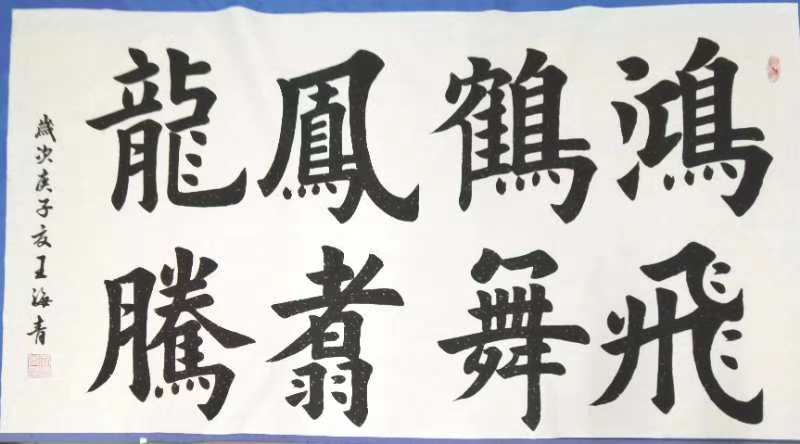 鴻飛
鶴舞
鳳翥
龍騰
歲次庚子友王海青